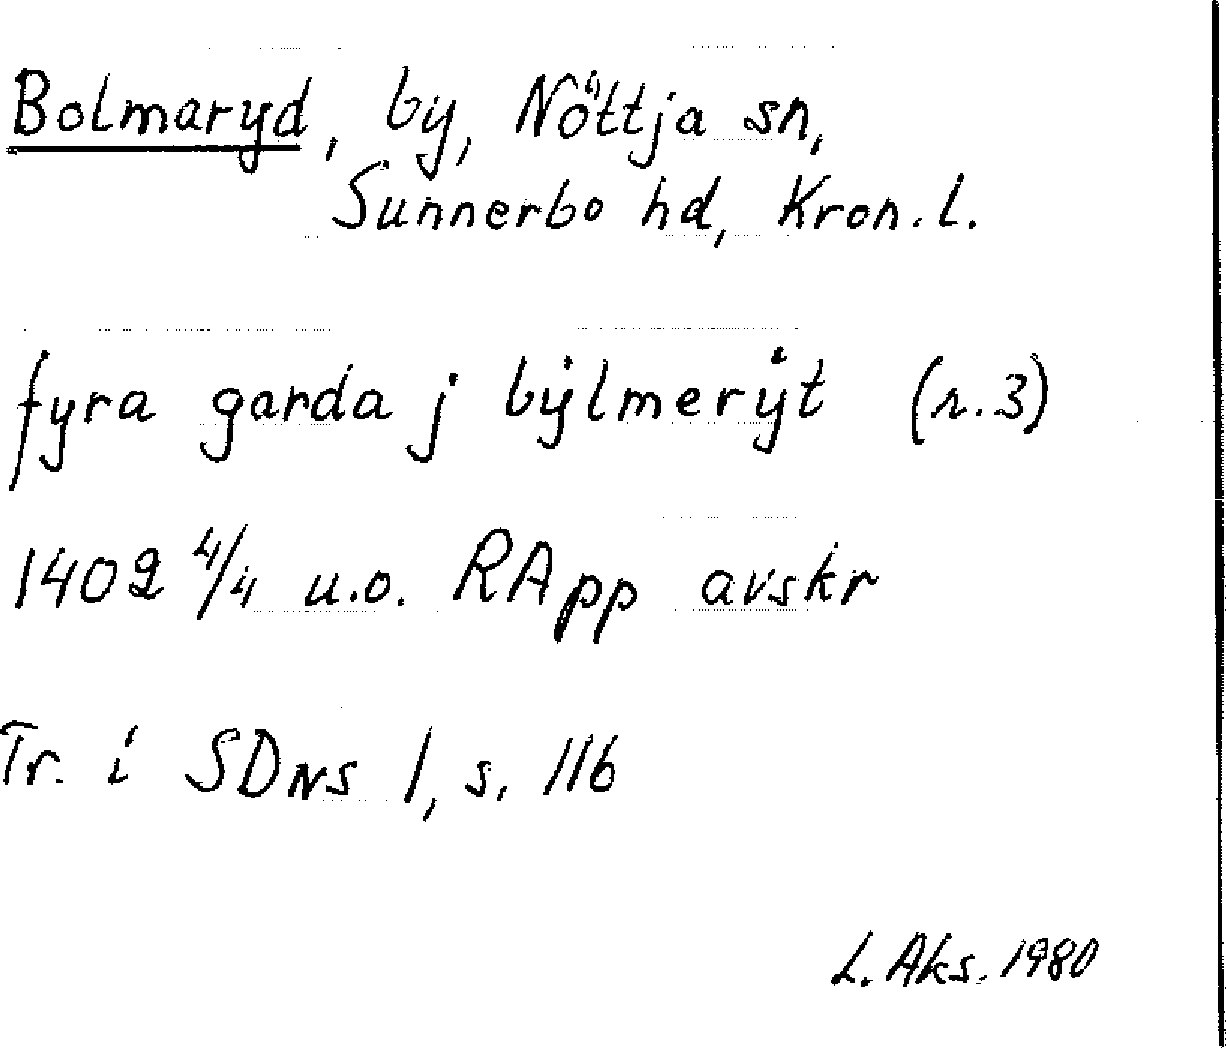 Bolmaryd, by, Nöttja sn,
Sunnerbo hd, Kron. l.
fyra garda j bẏlmerẏt (r. 3)
1402 4/4 u.o. RApp avskr
Tr. i SDNS 1, s. 116
L. Aks. 1980